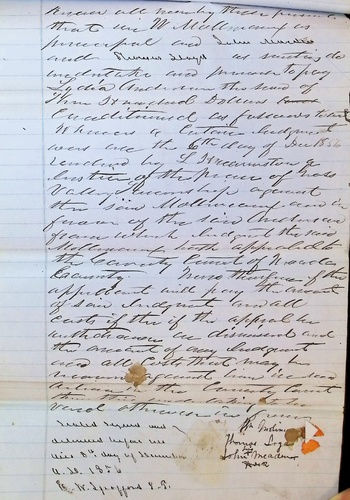 Know all men by these presents
that we W McElmeary as
principal and John Meador
and Thomas Loya as sureties do
undertake and promise to pay
Lydia Anderson the sum of
Three Hundred Dollars
Conditioned as follows to wit
Whereas a certain Judgment
was on the 6th day of Dec 1856
rendered by
Justice of the Peace of
Township against
the said and in
favor of the said Anderson
from which Judgment the said
hath appealed to
the County Court of Nevada
County. Now therefore if the
appellant will pay the amount
of said Judgment and all
costs if the appeal be
withdrawn or dismissed and
the amount of any Judgment
and all costs that may be
recovered against him in said
action in the County Court
then this undertaking to be
void otherwise in force
Sealed signed and
delivered before me
this 8th day of December
A.D. 1856
Thomas Loya
John Meador